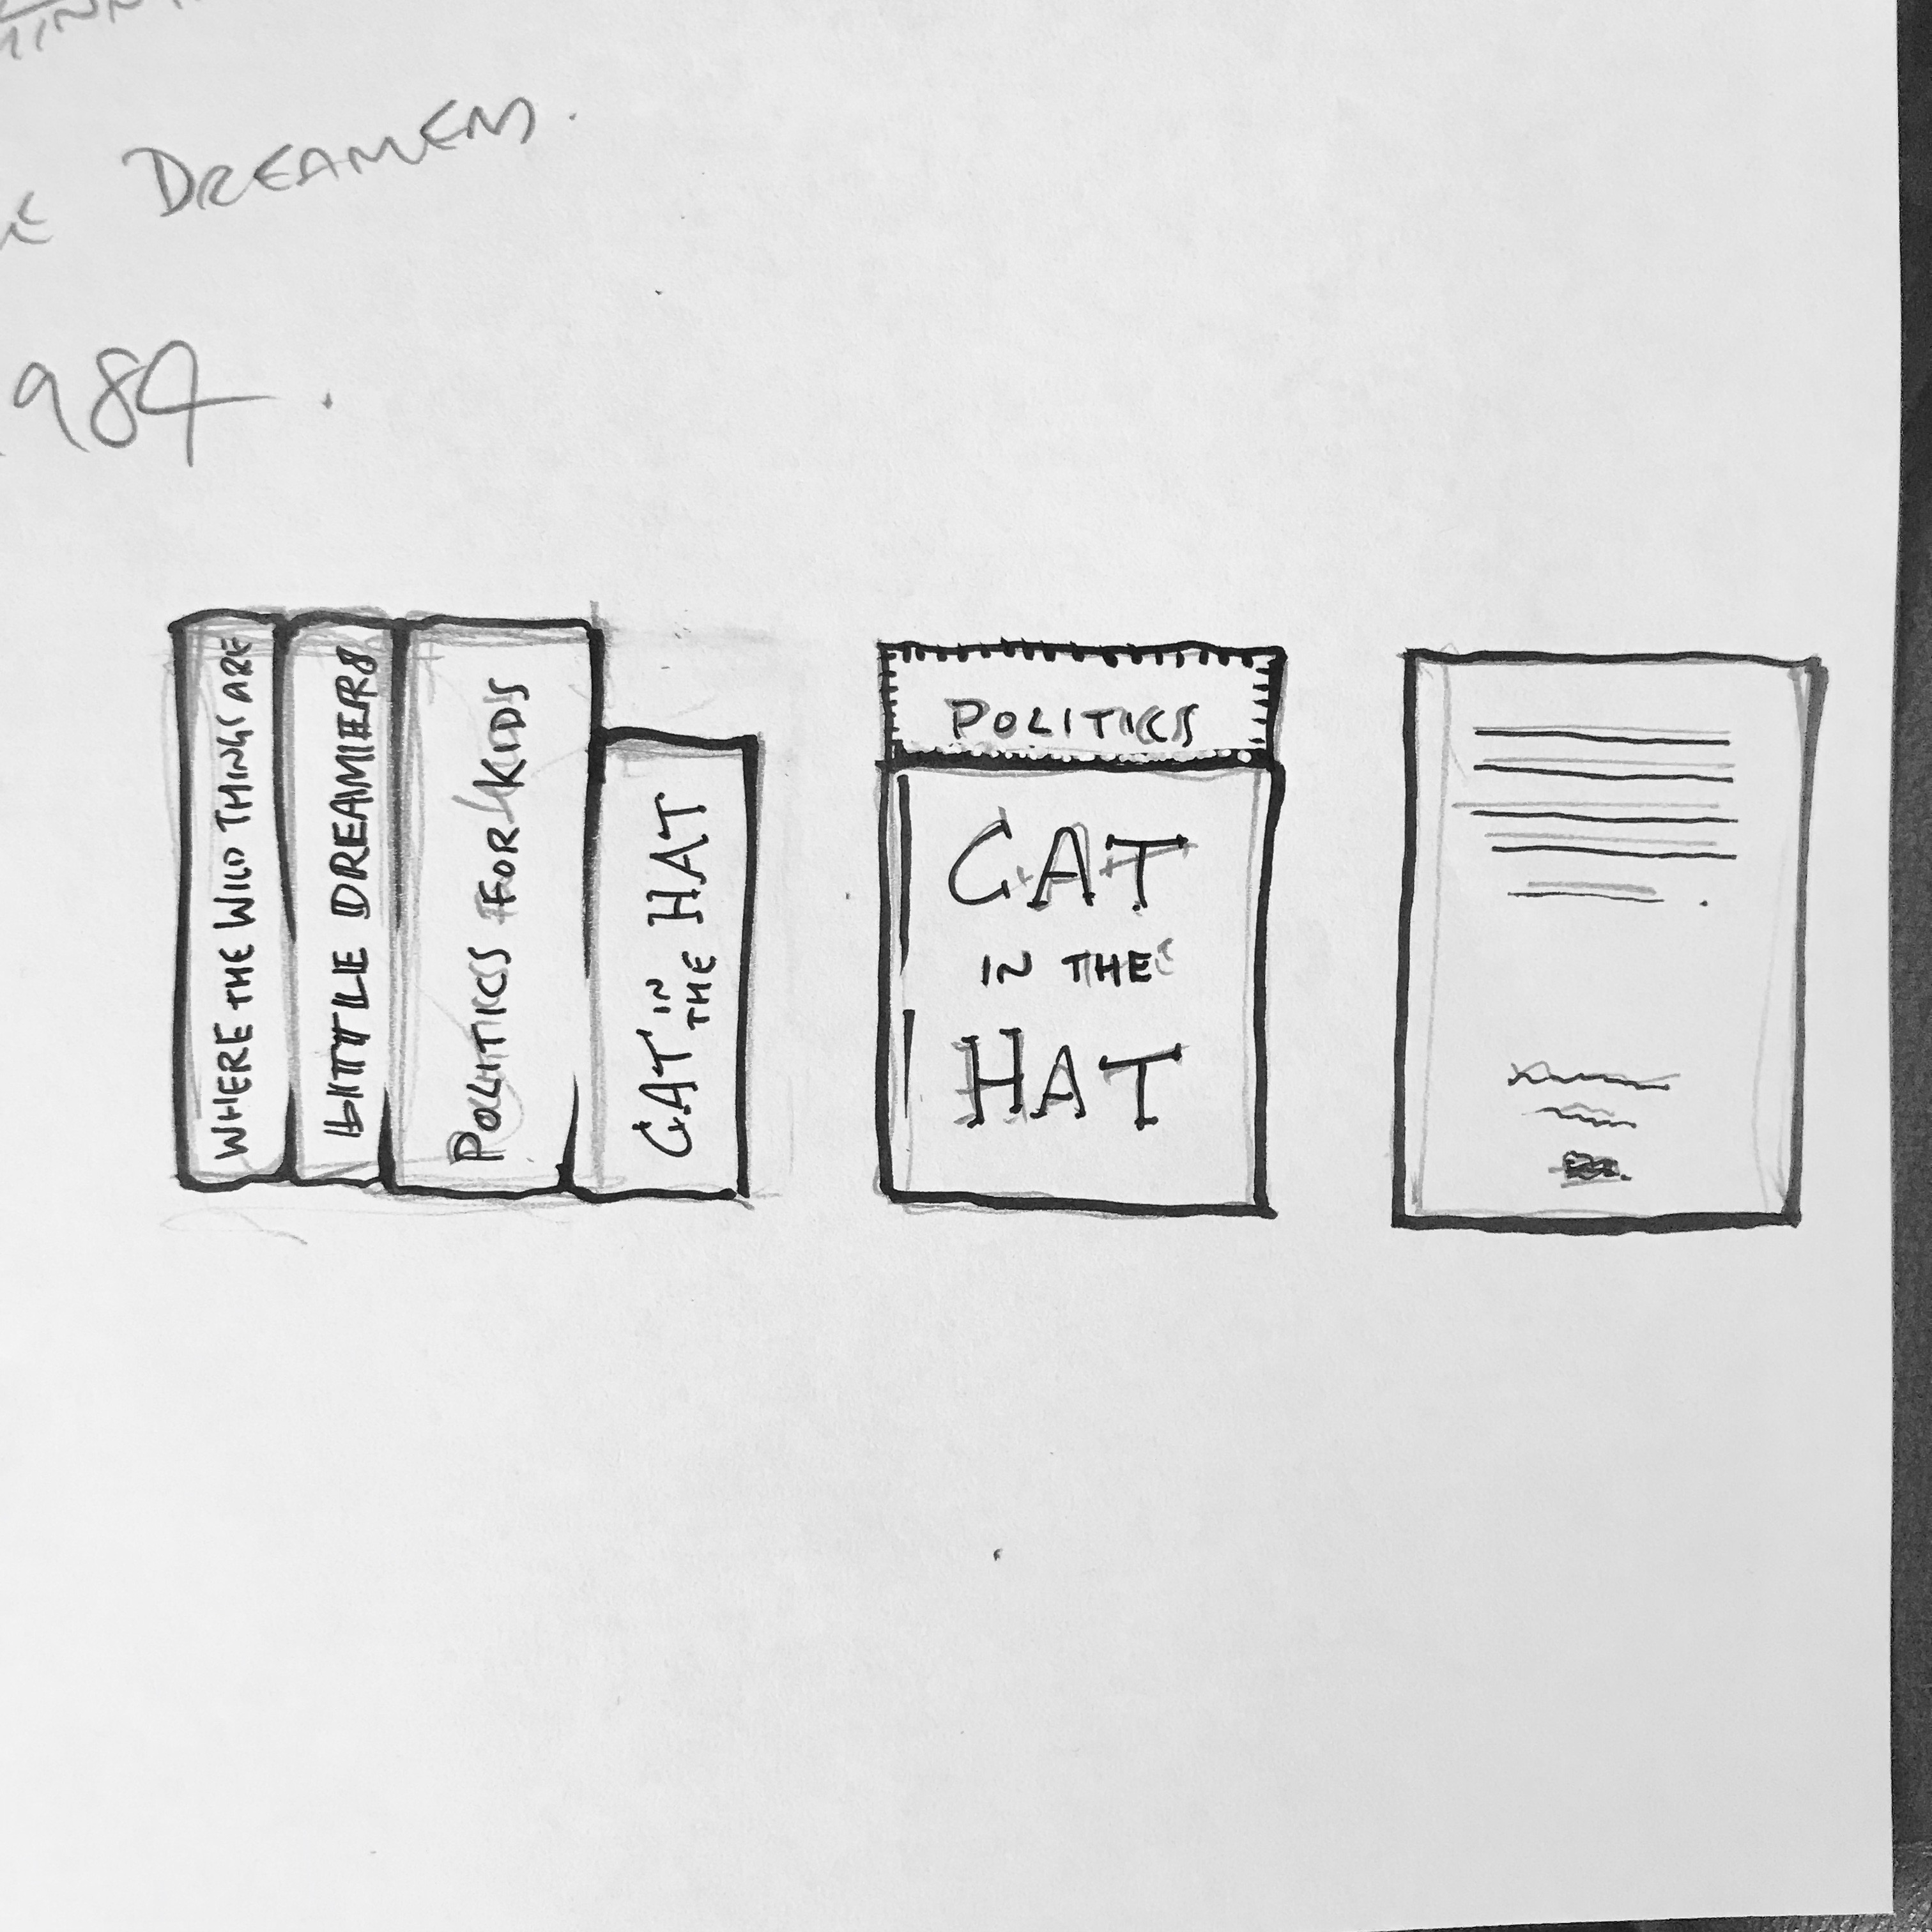 DREAMERS.
984.
WHERE THE WILD THINGS ARE
LITTLE DREAMERS
POLITICS FOR KIDS
CAT IN THE HAT
POLITICS
CAT
IN THE
HAT